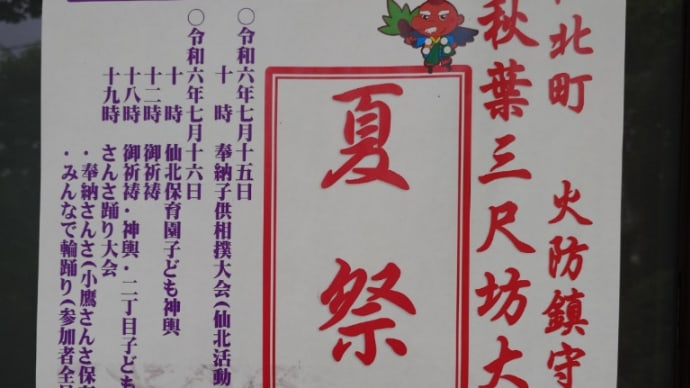 北町 火防鎮守
秋葉三尺坊大
夏祭
○令和六年七月十五日
十時 奉納子供相撲大会(仙北活動
○令和六年七月十六日
十時 仙北保育園子ども神輿
十二時 御祈祷
十八時 御祈祷・神輿・二丁目子ども
十九時 さんさ踊り大会
・奉納さんさ(小鷹さんさ保
・みんなで輪踊り(参加者全